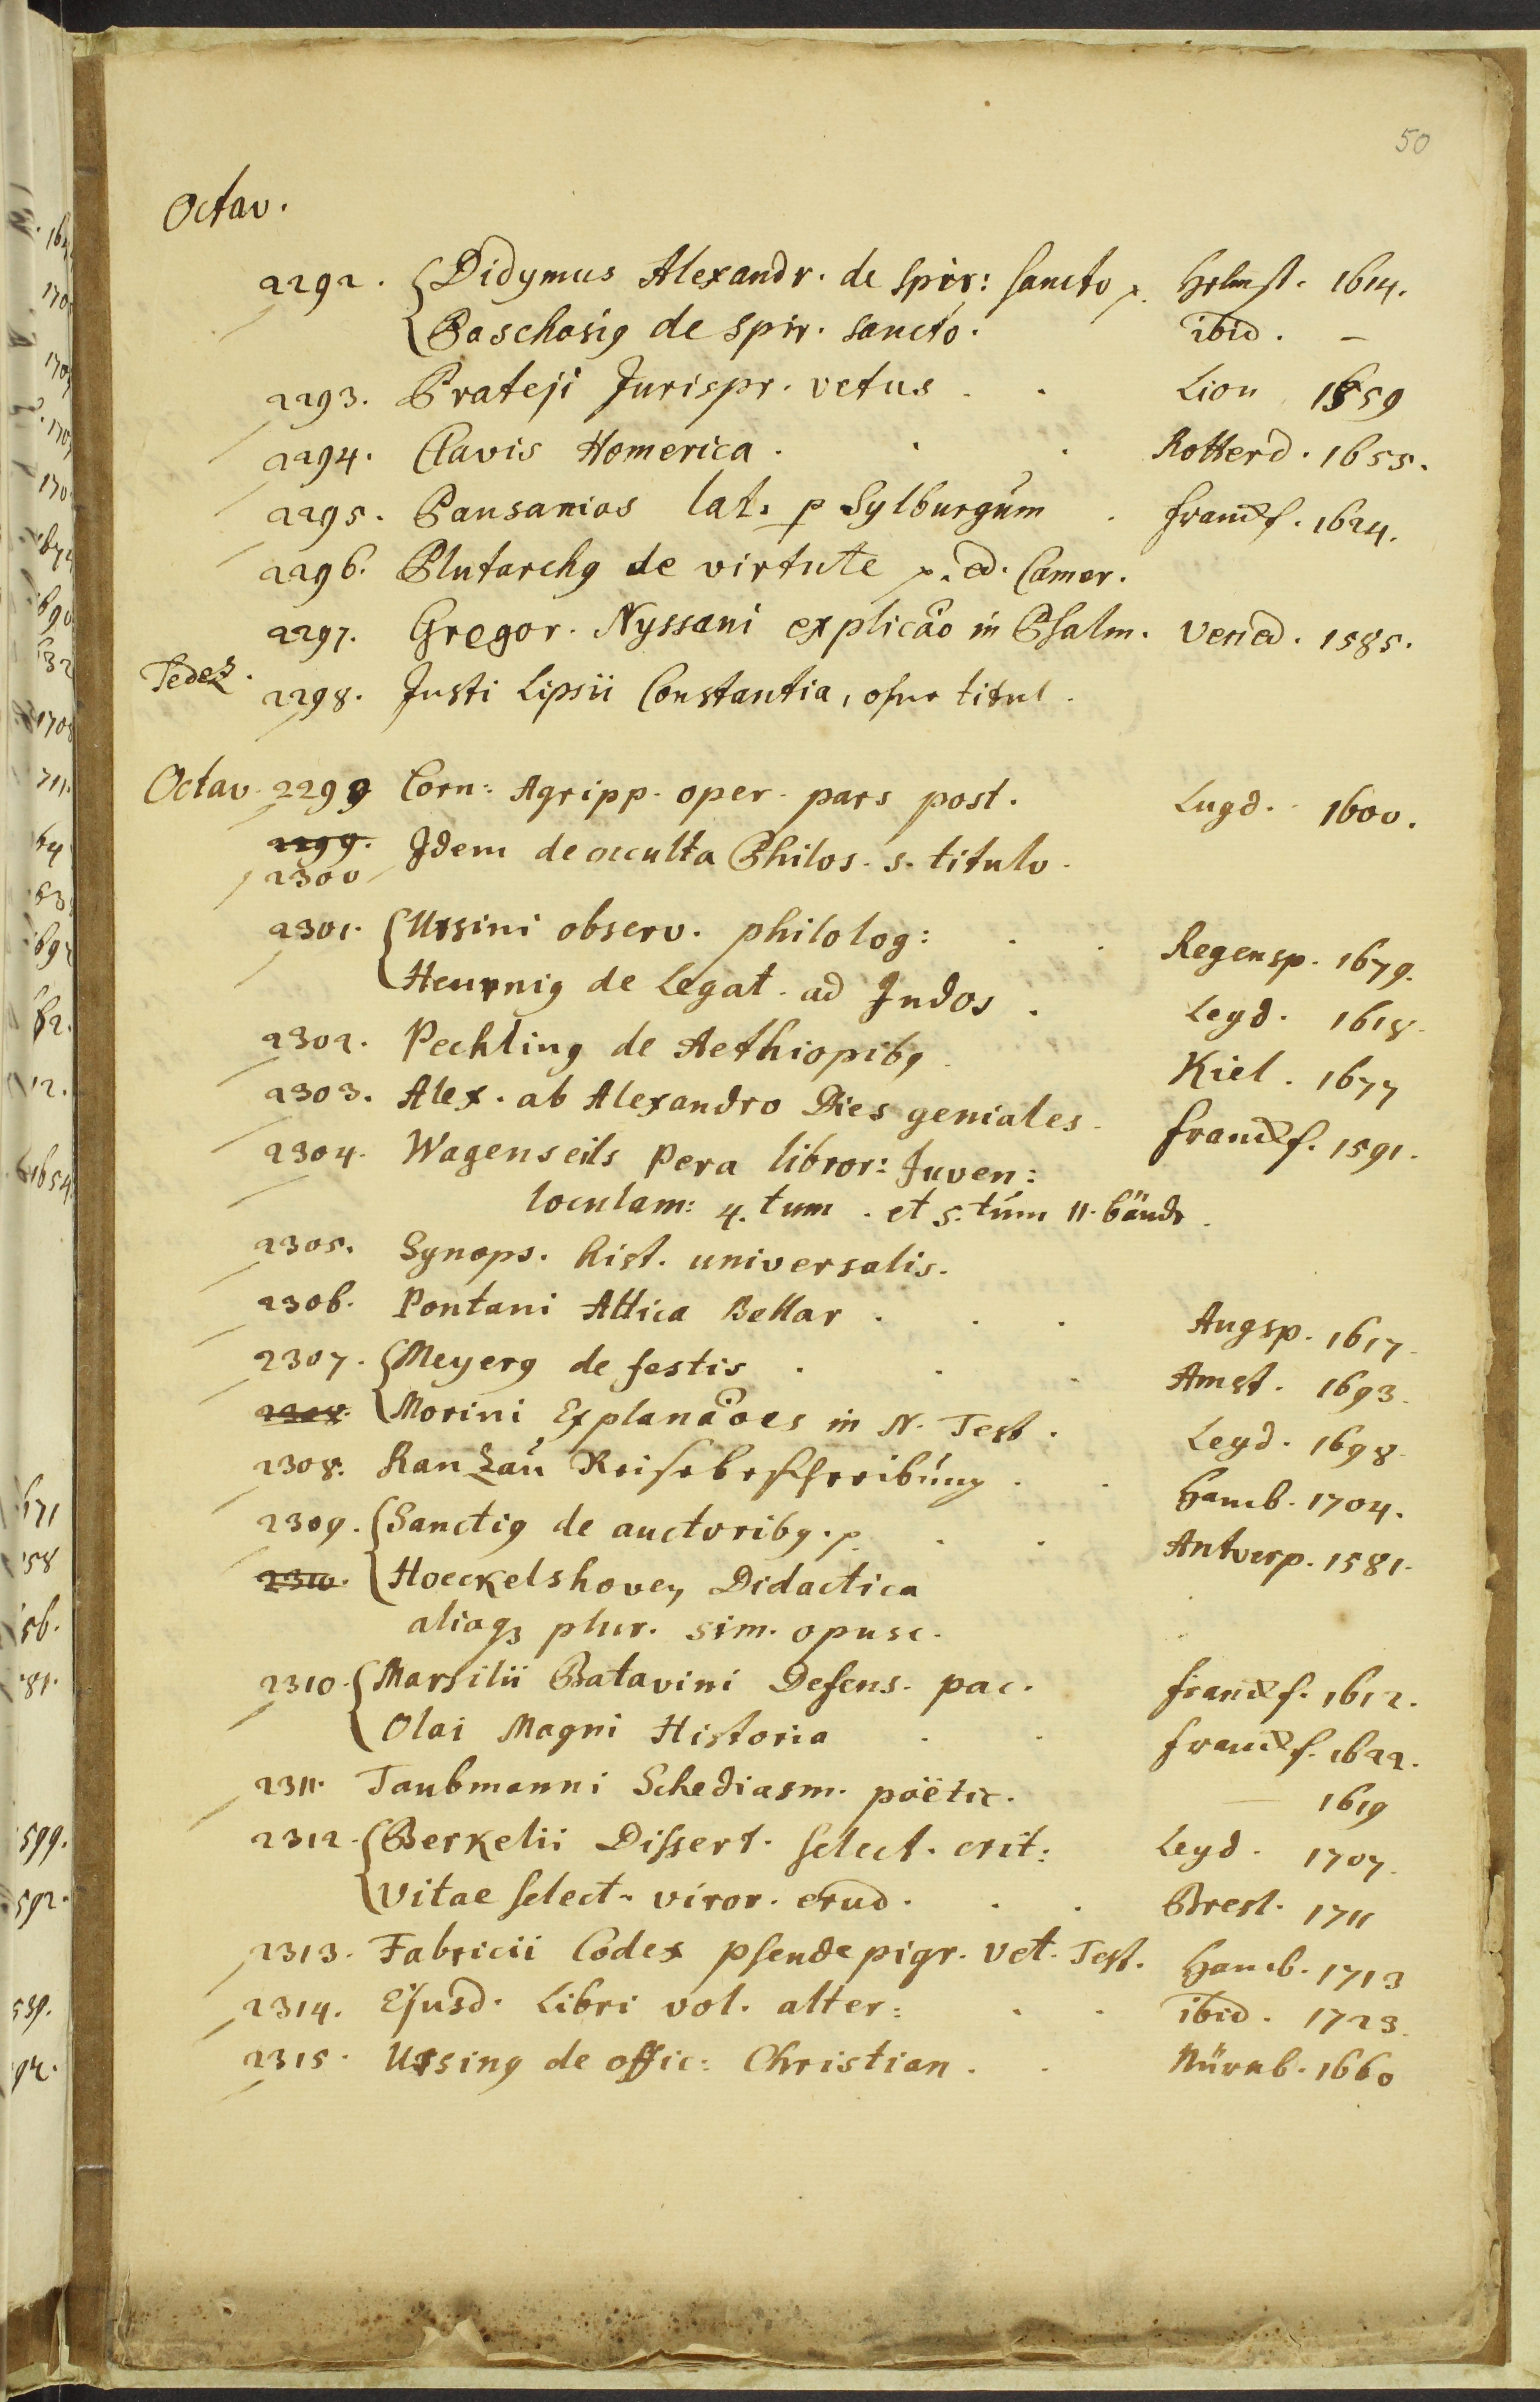 50
Octav.
2292. Didymus Alexandr. de Spir: sancto p. Helmst. 1614.
Paschasiq de Spir. sancto. ibid. –
2293. Prateji Jurispr. vetus . . Lion 1559
2294. Clavis Homerica . . . Rotterd. 1655.
2295. Pausanias lat. p Sylburgum . Franckf. 1624.
2296. Plutarchq de virtute p. ed. Camer.
2297. Gregor. Nyssani explicao in Psalm. Vened. 1585.
2298. Justi Lipsii Constantia, ohne titul.
Octav. 2299 Corn: Agripp. oper. pars post. Lugd. 1600.
2299. Idem de occulta Philos. s. titulo.
2300
2301. Ursini observ. philolog: . . Regensp. 1679.
Heurniq de Legat. ad Indos . Leyd. 1618.
2302. Pechlinq de Aethiopibq Kiel. 1677
2303. Alex. ab Alexandro Dies geniales. Franckf. 1591.
2304. Wagenseils Pera libror: Juven:
loculam: 4. tum . et 5. tum 11. bände.
2305. Synops. hist. universalis.
2306. Pontani Attica Bellar . . . Augsp. 1617.
2307. Meyerq de festis . . . Amst. 1693.
2308. Morini Explanaoes in N. Test. Leyd. 1698.
2308. Ranzau Reisebeschreibung . . Hamb. 1704.
2309. Sanctiq de auctoribq. p. . . Antverp. 1581.
2310. Hoeckelshoven Didactica
aliaqz plur. sim. opusc.
2310. Marsilii Patavini Defens. pac. Franckf. 1612.
Olai Magni Historia . . Franckf. 1622.
2311. Taubmanni Schediasm. poëtic. — 1619
2312. Berkelii Dissert. select. crit: Leyd. 1707.
Vitae select. viror. erud. . . Bresl. 1711
2313. Fabricii Codex pseudepigr. Vet. Test. Hamb. 1713
2314. Ejusd. Libri vol. alter: . . ibid. 1723.
2315. Ursinq de offic: Christian . . Nürnb. 1660